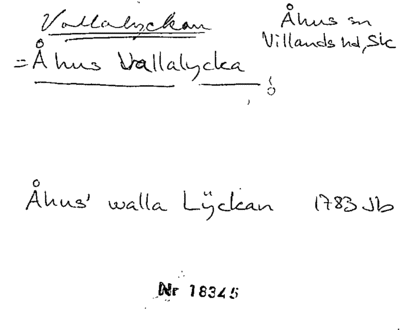 Vallalyckan
Åhus sn
Villands hd, Sk
= Åhus Vallalycka
Åhus' walla Lÿckan 1783 Jb
Nr 18345